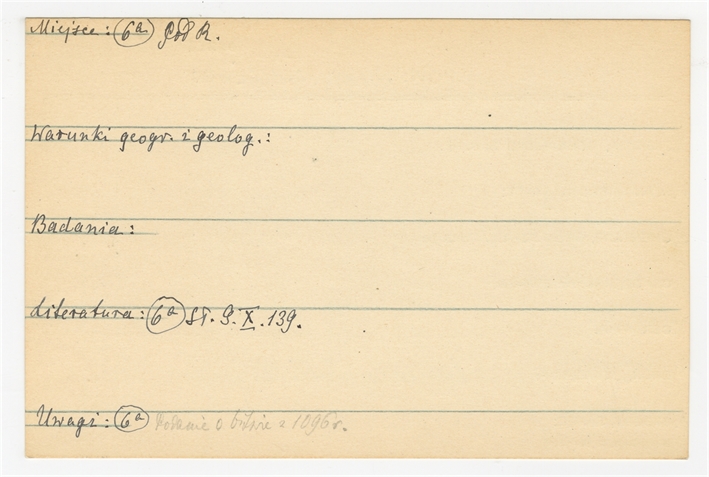 Miejsce: 6a Pod R.
Warunki geogr. i geolog.:
Badania:
Literatura: 6a St. G. X. 139.
Uwagi: 6a Podanie o bitwie z 1096 r.